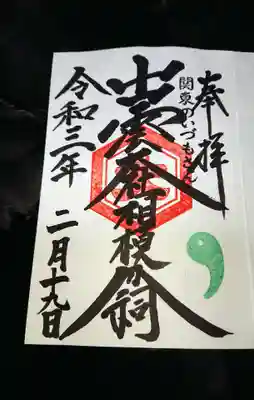 奉拝
関東のいづもさん
出雲大社相模分祠
令和三年
二月十九日